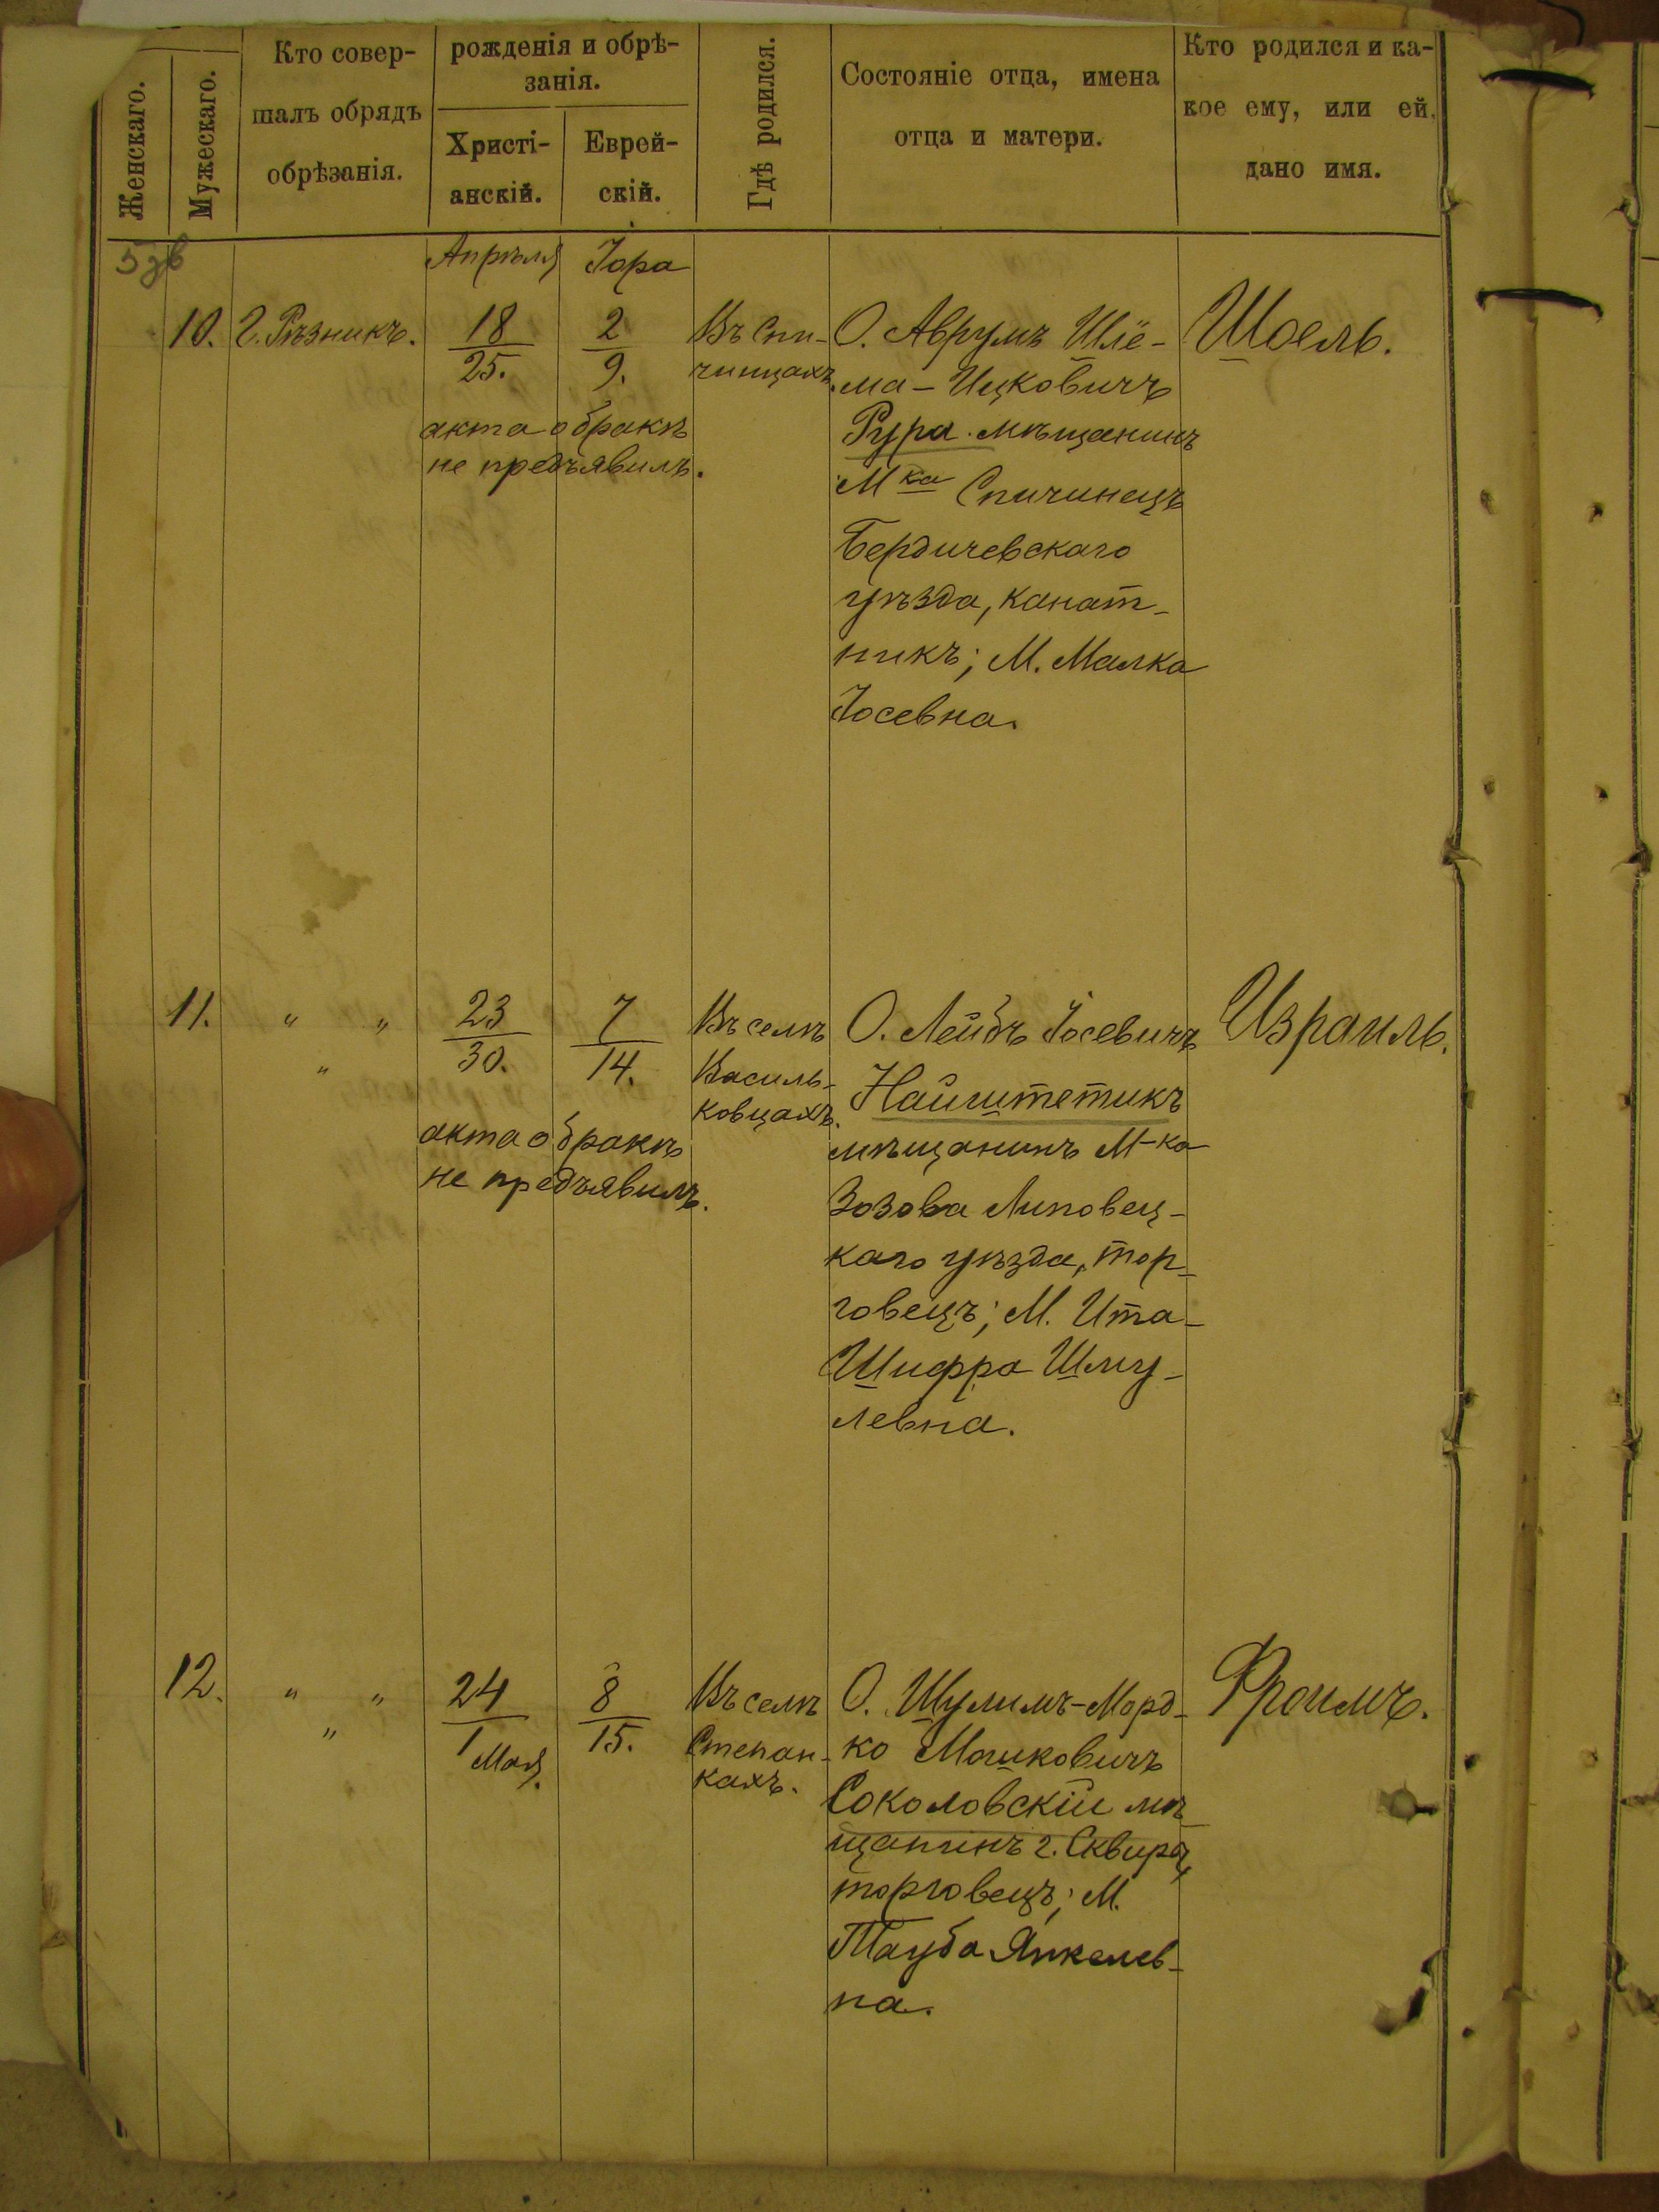 Женскаго.
Мужескаго.
Кто совер-
шалъ обрядъ
обрѣзанія.
рожденія и обрѣ-
занія.
Христі-
анскій.
Еврей-
скій.
Гдѣ родился.
Состояніе отца, имена
отца и матери.
Кто родился и ка-
кое ему, или ей,
дано имя.
5зв
Апрѣля
Іора
10.
Г. Рѣзникъ.
18
25.
2
9.
акта о бракѣ
не предъявилъ.
Въ Спи-
чинцахъ.
О. Аврумъ Шлё-
ма-Ицковичъ
Рура мѣщанинъ
М ка Спичинецъ
Бердичевскаго
уѣзда, канат-
никъ; М. Малка
Іосевна.
Шоель.
11.
" "
"
23
30.
7
14.
акта о бракѣ
не предъявилъ.
Въ селѣ
Василь-
ковцахъ.
О. Лейбъ Іосевичъ
Найштетикъ
мѣщанинъ М-ка
Зозова Липовец-
каго уѣзда, тор-
говецъ; М. Ита-
Шифра Шму-
левна.
Израиль.
12.
" "
"
24
1 Мая.
8
15.
Въ селѣ
Степан-
кахъ.
О. Шулимъ-Морд-
ко Мошковичъ
Соколовскій мѣ
щанинъ г. Сквиры,
торговецъ; М.
Тауба Янкелев-
на.
Фроимъ.